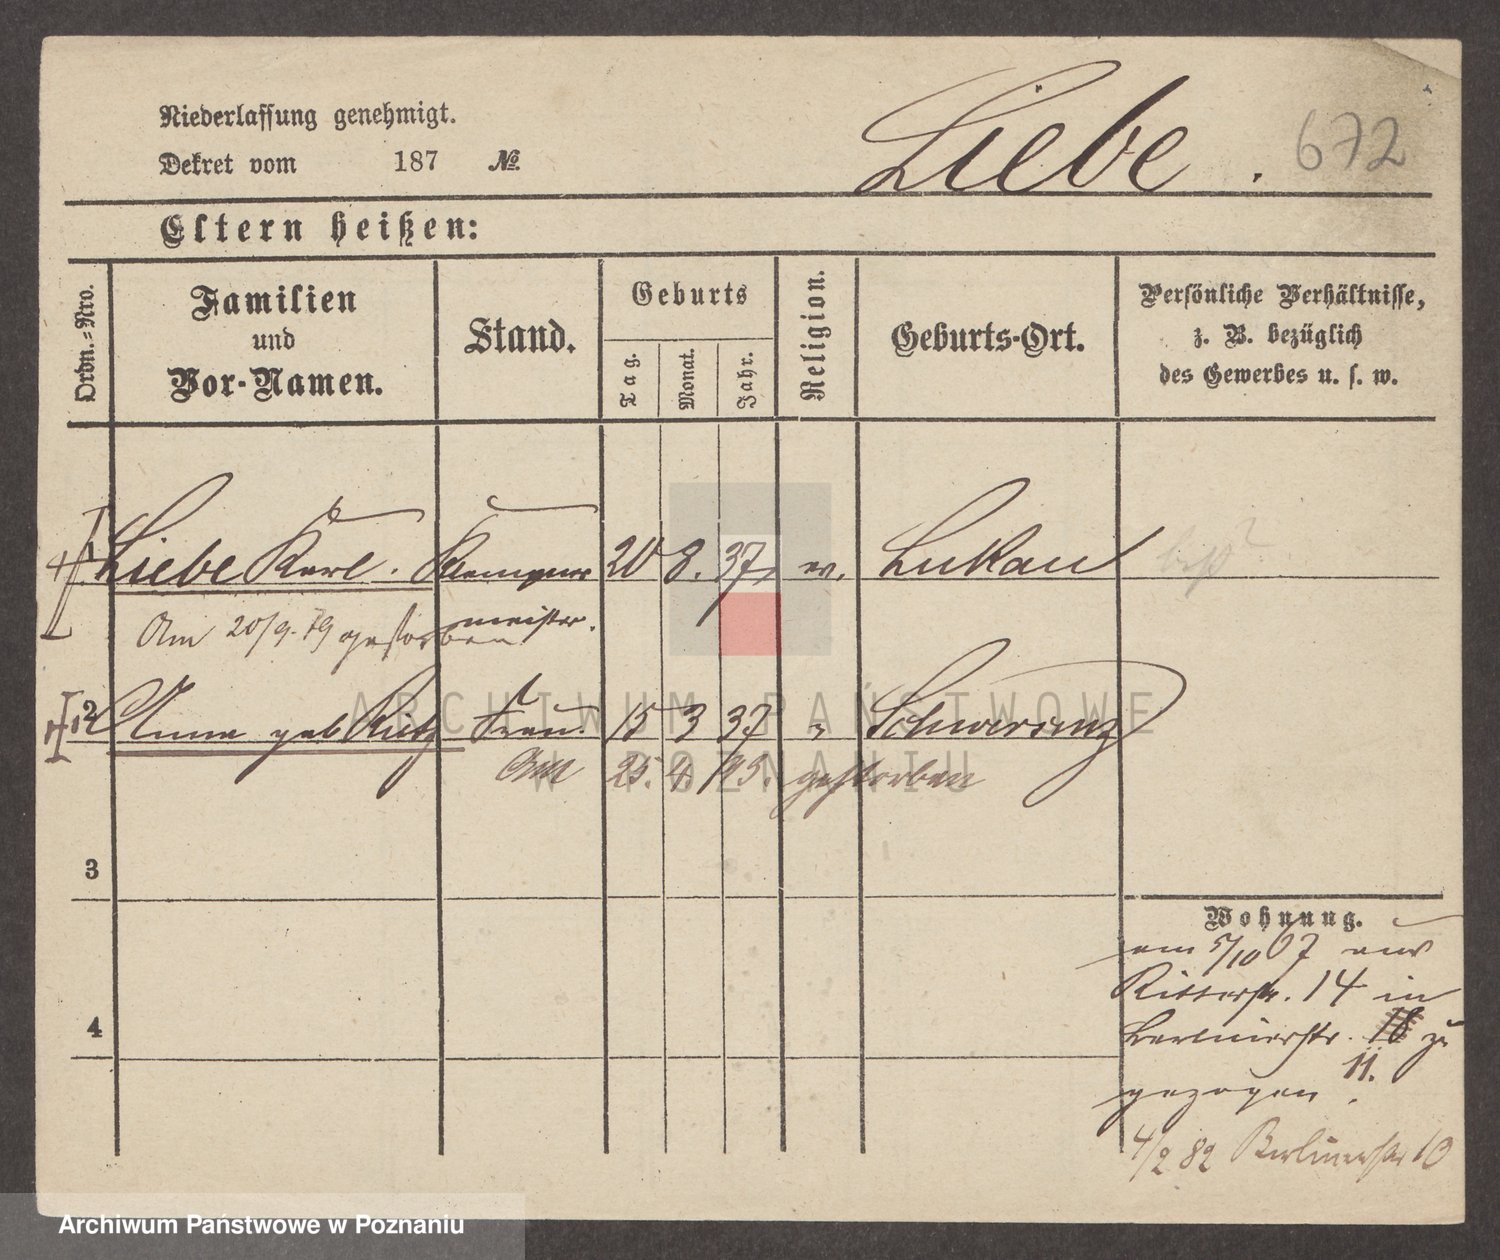 Niederlassung genehmigt.
Dekret vom 187 №
Liebe. 672
Eltern heißen:
Ordn.=Nro.
Familien
und
Vor-Namen.
Stand.
Geburts
Tag.
Monat.
Jahr.
Religion.
Geburts-Ort.
Persönliche Verhältnisse,
z. B. bezüglich
des Gewerbes u. s. w.
1 Liebe Karl. Klempner 20 8. 37, ev. Lukau
meister.
Am 20/9. 79 gestorben
2 Anna geb Frau. 15 3 37 " Schwersenz
Am 25. 4. gestorben
3
4
Wohnung.
am 5/10 67 aus
Ritterstr. 14 in
Berlinerstr. zu
11.
gezogen.
4/2 82 Berlinerstr 10
ARCHIWUM PAŃSTWOWE
W POZNANIU
Archiwum Państwowe w Poznaniu